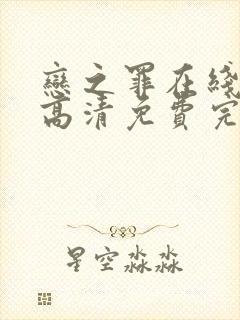 戀之罪在綫
高清免費完
星空淼淼